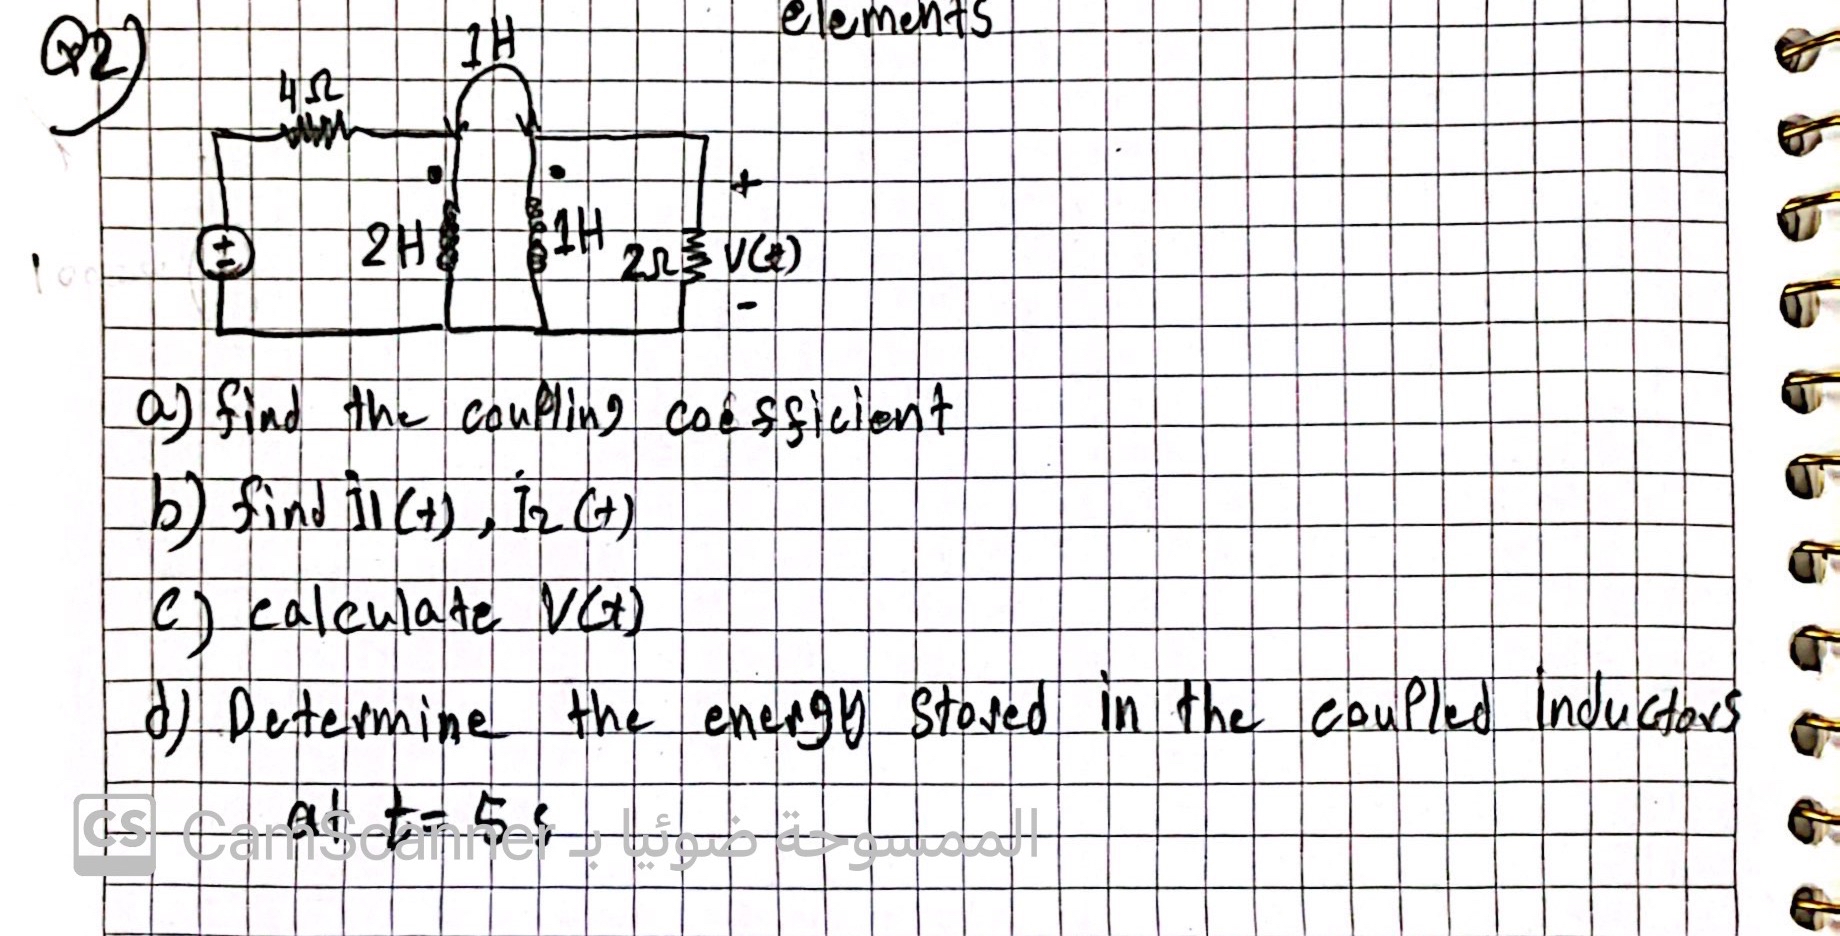 elements
Q2)
1H
4Ω
2H
1H
2Ω
V(t)
+
-
a) find the coupling coefficient
b) find i1(t), i2(t)
c) calculate V(t)
d) Determine the energy stored in the coupled inductors
at t= 5s
CS CamScanner الممسوحة ضوئيا بـ